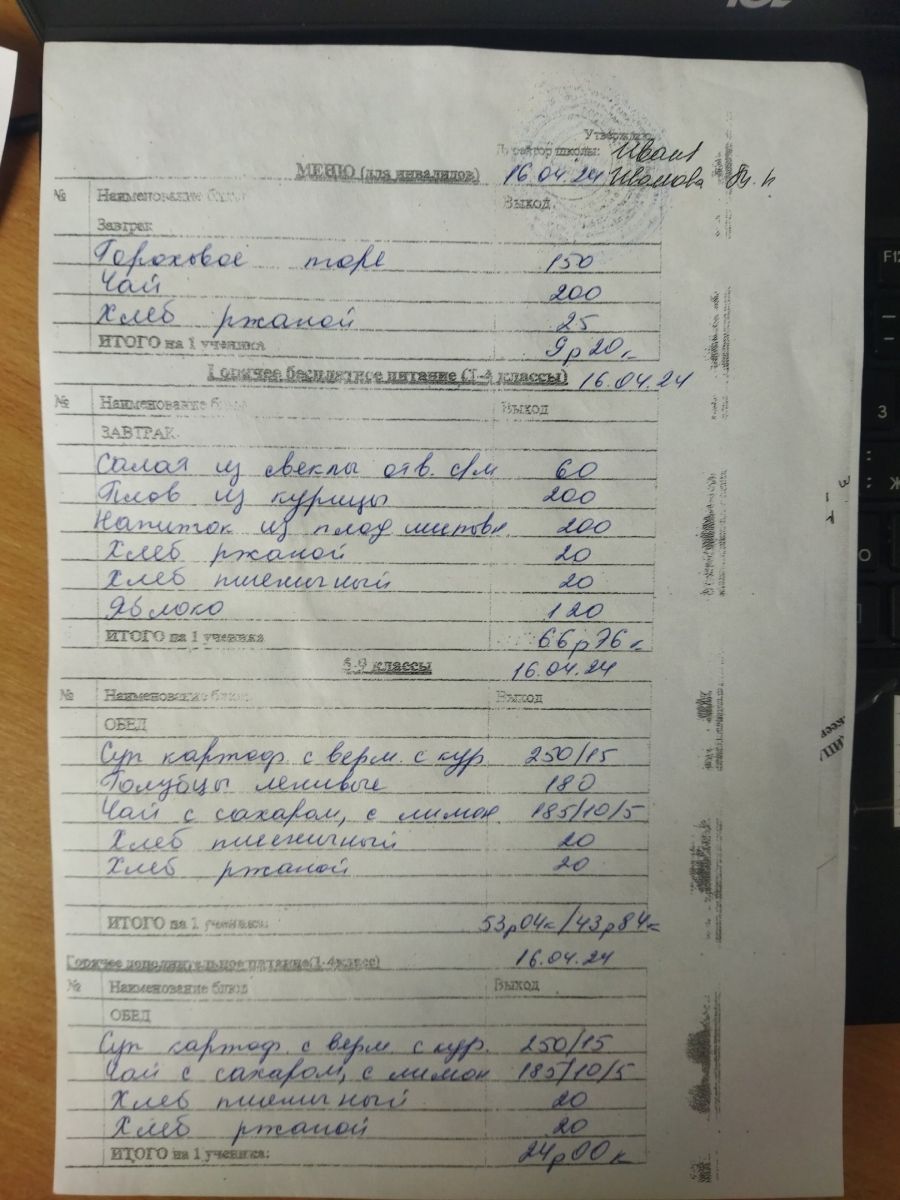 Утверждаю
Директор школы: Иван
МЕНЮ (для инвалидов) 16.04.24 Иванова
№ Наименование блюд Выход
Завтрак
Гороховое пюре 150
Чай 200
Хлеб ржаной 25
ИТОГО на 1 ученика 9р20к
Горячее бесплатное питание (1-4 классы) 16.04.24
№ Наименование блюд Выход
ЗАВТРАК
Салат из свеклы отв. с/м 60
Плов из курицы 200
Напиток из плод шиповн 200
Хлеб ржаной 20
Хлеб пшеничный 20
Яблоко 120
ИТОГО на 1 ученика 66р76к
5-9 классы 16.04.24
№ Наименование блюд Выход
ОБЕД
Суп картоф. с верм. с кур 250/15
Голубцы ленивые 180
Чай с сахаром, с лимон. 185/10/5
Хлеб пшеничный 20
Хлеб ржаной 20
ИТОГО на 1 ученика: 53р04к/43р84к
Горячее дополнительное питание(1-4класс) 16.04.24
№ Наименование блюд Выход
ОБЕД
Суп картоф. с верм. с кур. 250/15
Чай с сахаром, с лимон 185/10/5
Хлеб пшеничный 20
Хлеб ржаной 20
ИТОГО на 1 ученика: 24р00к